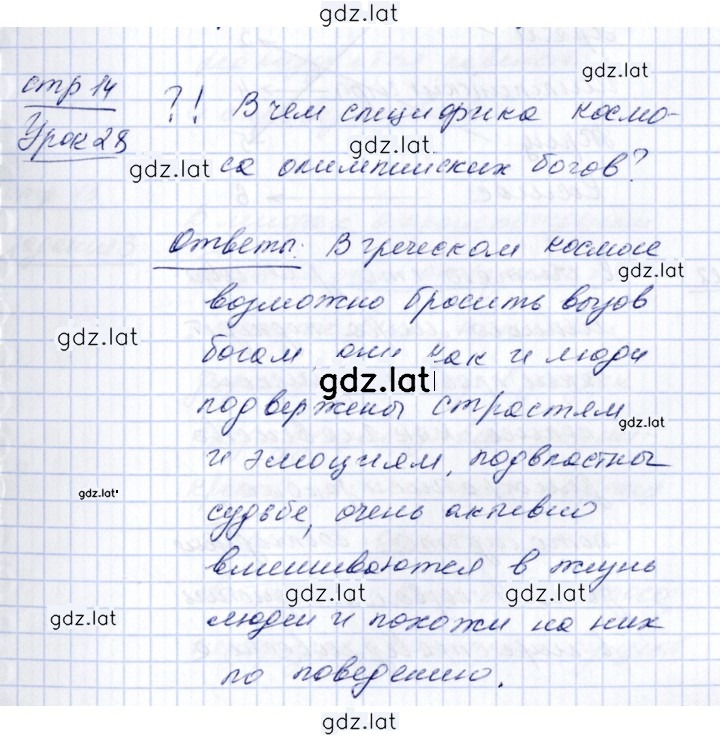 gdz.lat
стр 14
gdz.lat
?! В чем специфика космо-
Урок 28
gdz.lat
gdz.lat
са олимпийских богов?
Ответы: В греческом космосе
gdz.lat
возможно бросить вызов
gdz.lat
богам, они как и люди
gdz.lat
подвержены страстям
gdz.lat
и эмоциям, подвластны
gdz.lat
судьбе, очень активно
вмешиваются в жизнь
gdz.lat
gdz.lat
gdz.lat
людей и похожи на них
по поведению.
gdz.lat